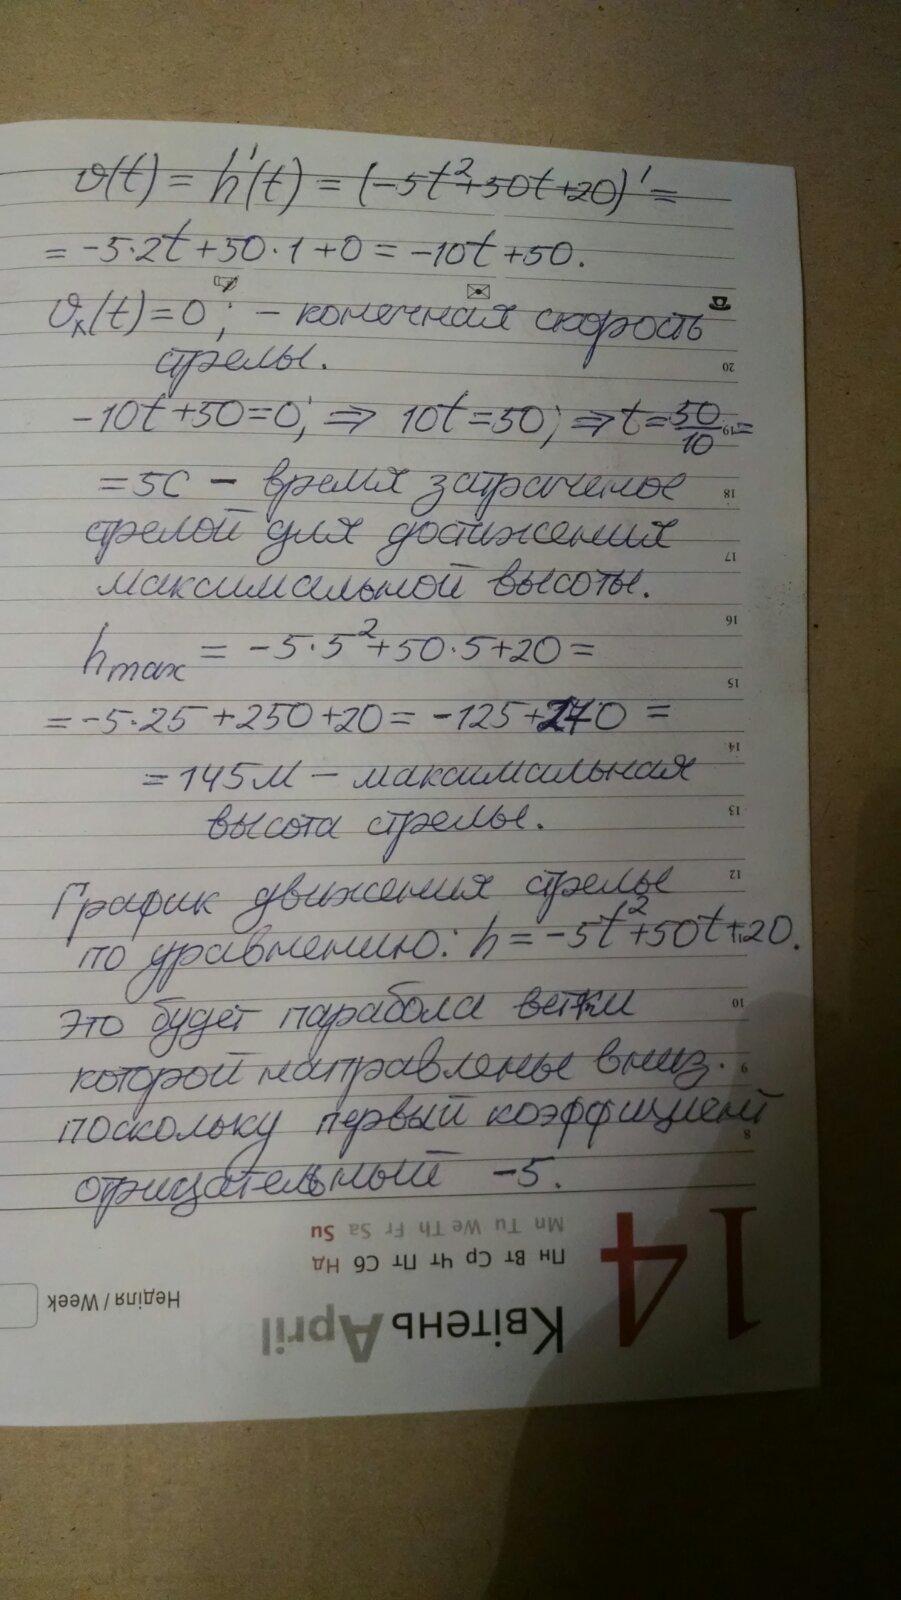 v(t) = h'(t) = (-5t²+50t+20)' =
= -5·2t+50·1+0 = -10t+50.
vₖ(t)=0; - конечная скорость
стрелы.
20
-10t+50=0; ⇒ 10t=50; ⇒ t=50/10=
19
=5с - время затраченое
18
стрелой для достижения
17
максимальной высоты.
16
hmax = -5·5²+50·5+20=
15
=-5·25+250+20= -125+270 =
14
=145м - максимальная
высота стрелы.
13
12
График движения стрелы
по уравнению: h=-5t²+50t+20.
11
Это будет парабола ветки
10
которой направлены вниз.
9
поскольку первый коэффициент
8
отрицательный -5.
14
Mn Tu We Th Fr Sa Su
Пн Вт Ср Чт Пт Сб Нд
Неділя / Week
Квітень April